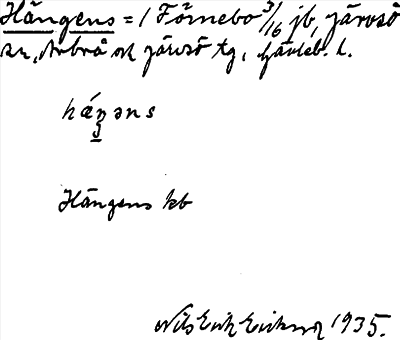 Hängens = 1 Förnebo 3/16 jb, Järvsö
sn, Arbrå och Järvsö tg, Gävleb. l.
hæŋəns
Hängens kb
Nils Erik Eriksson 1935.